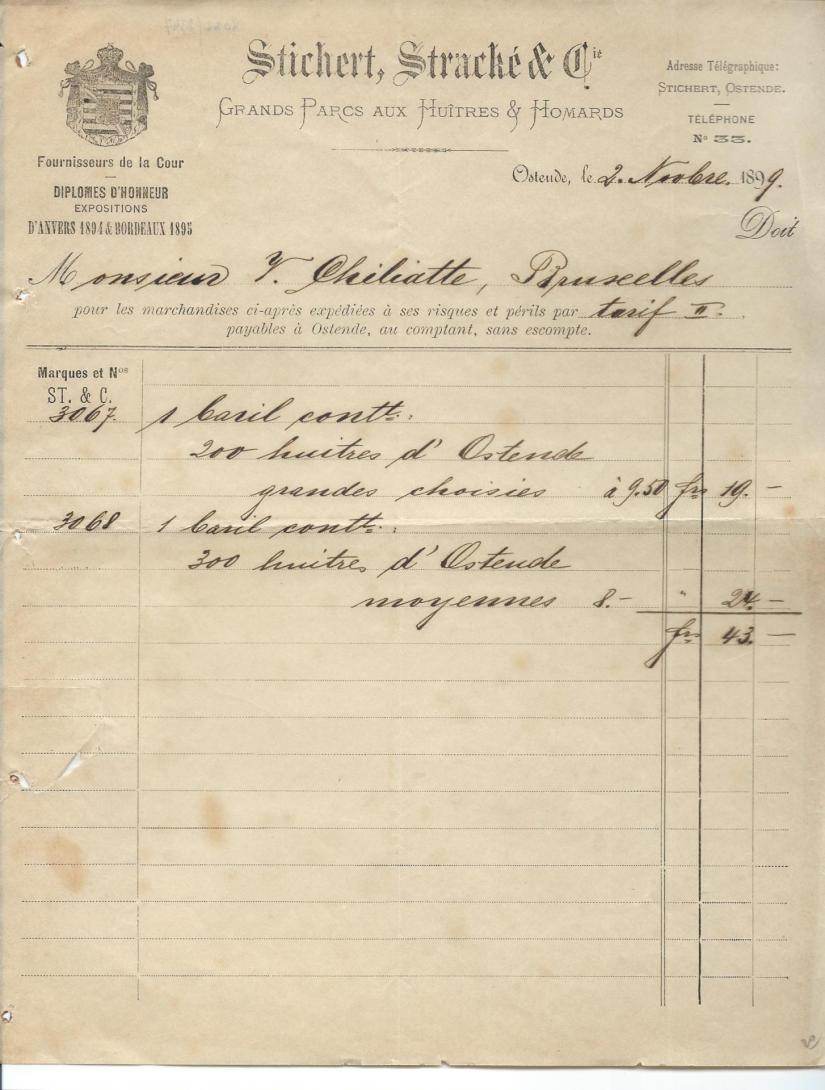 Stichert, Stracké & Cie
Grands Parcs aux Huîtres & Homards
Adresse Télégraphique:
Stichert, Ostende.
Téléphone
No 33.
Fournisseurs de la Cour
DIPLOMES D'HONNEUR
EXPOSITIONS
D'ANVERS 1894 & BORDEAUX 1895
Ostende, le 2. Novbre. 1899.
Doit
Monsieur V. Chiliatte, Bruxelles
pour les marchandises ci-après expédiées à ses risques et périls par tarif II.
payables à Ostende, au comptant, sans escompte.
Marques et Nos
ST. & C.
3067. 1 baril contt.:
200 huitres d'Ostende
grandes choisies à 9.50 frs 19.–
3068 1 baril contt.:
300 huitres d'Ostende
moyennes 8.– " 24.–
frs 43.–